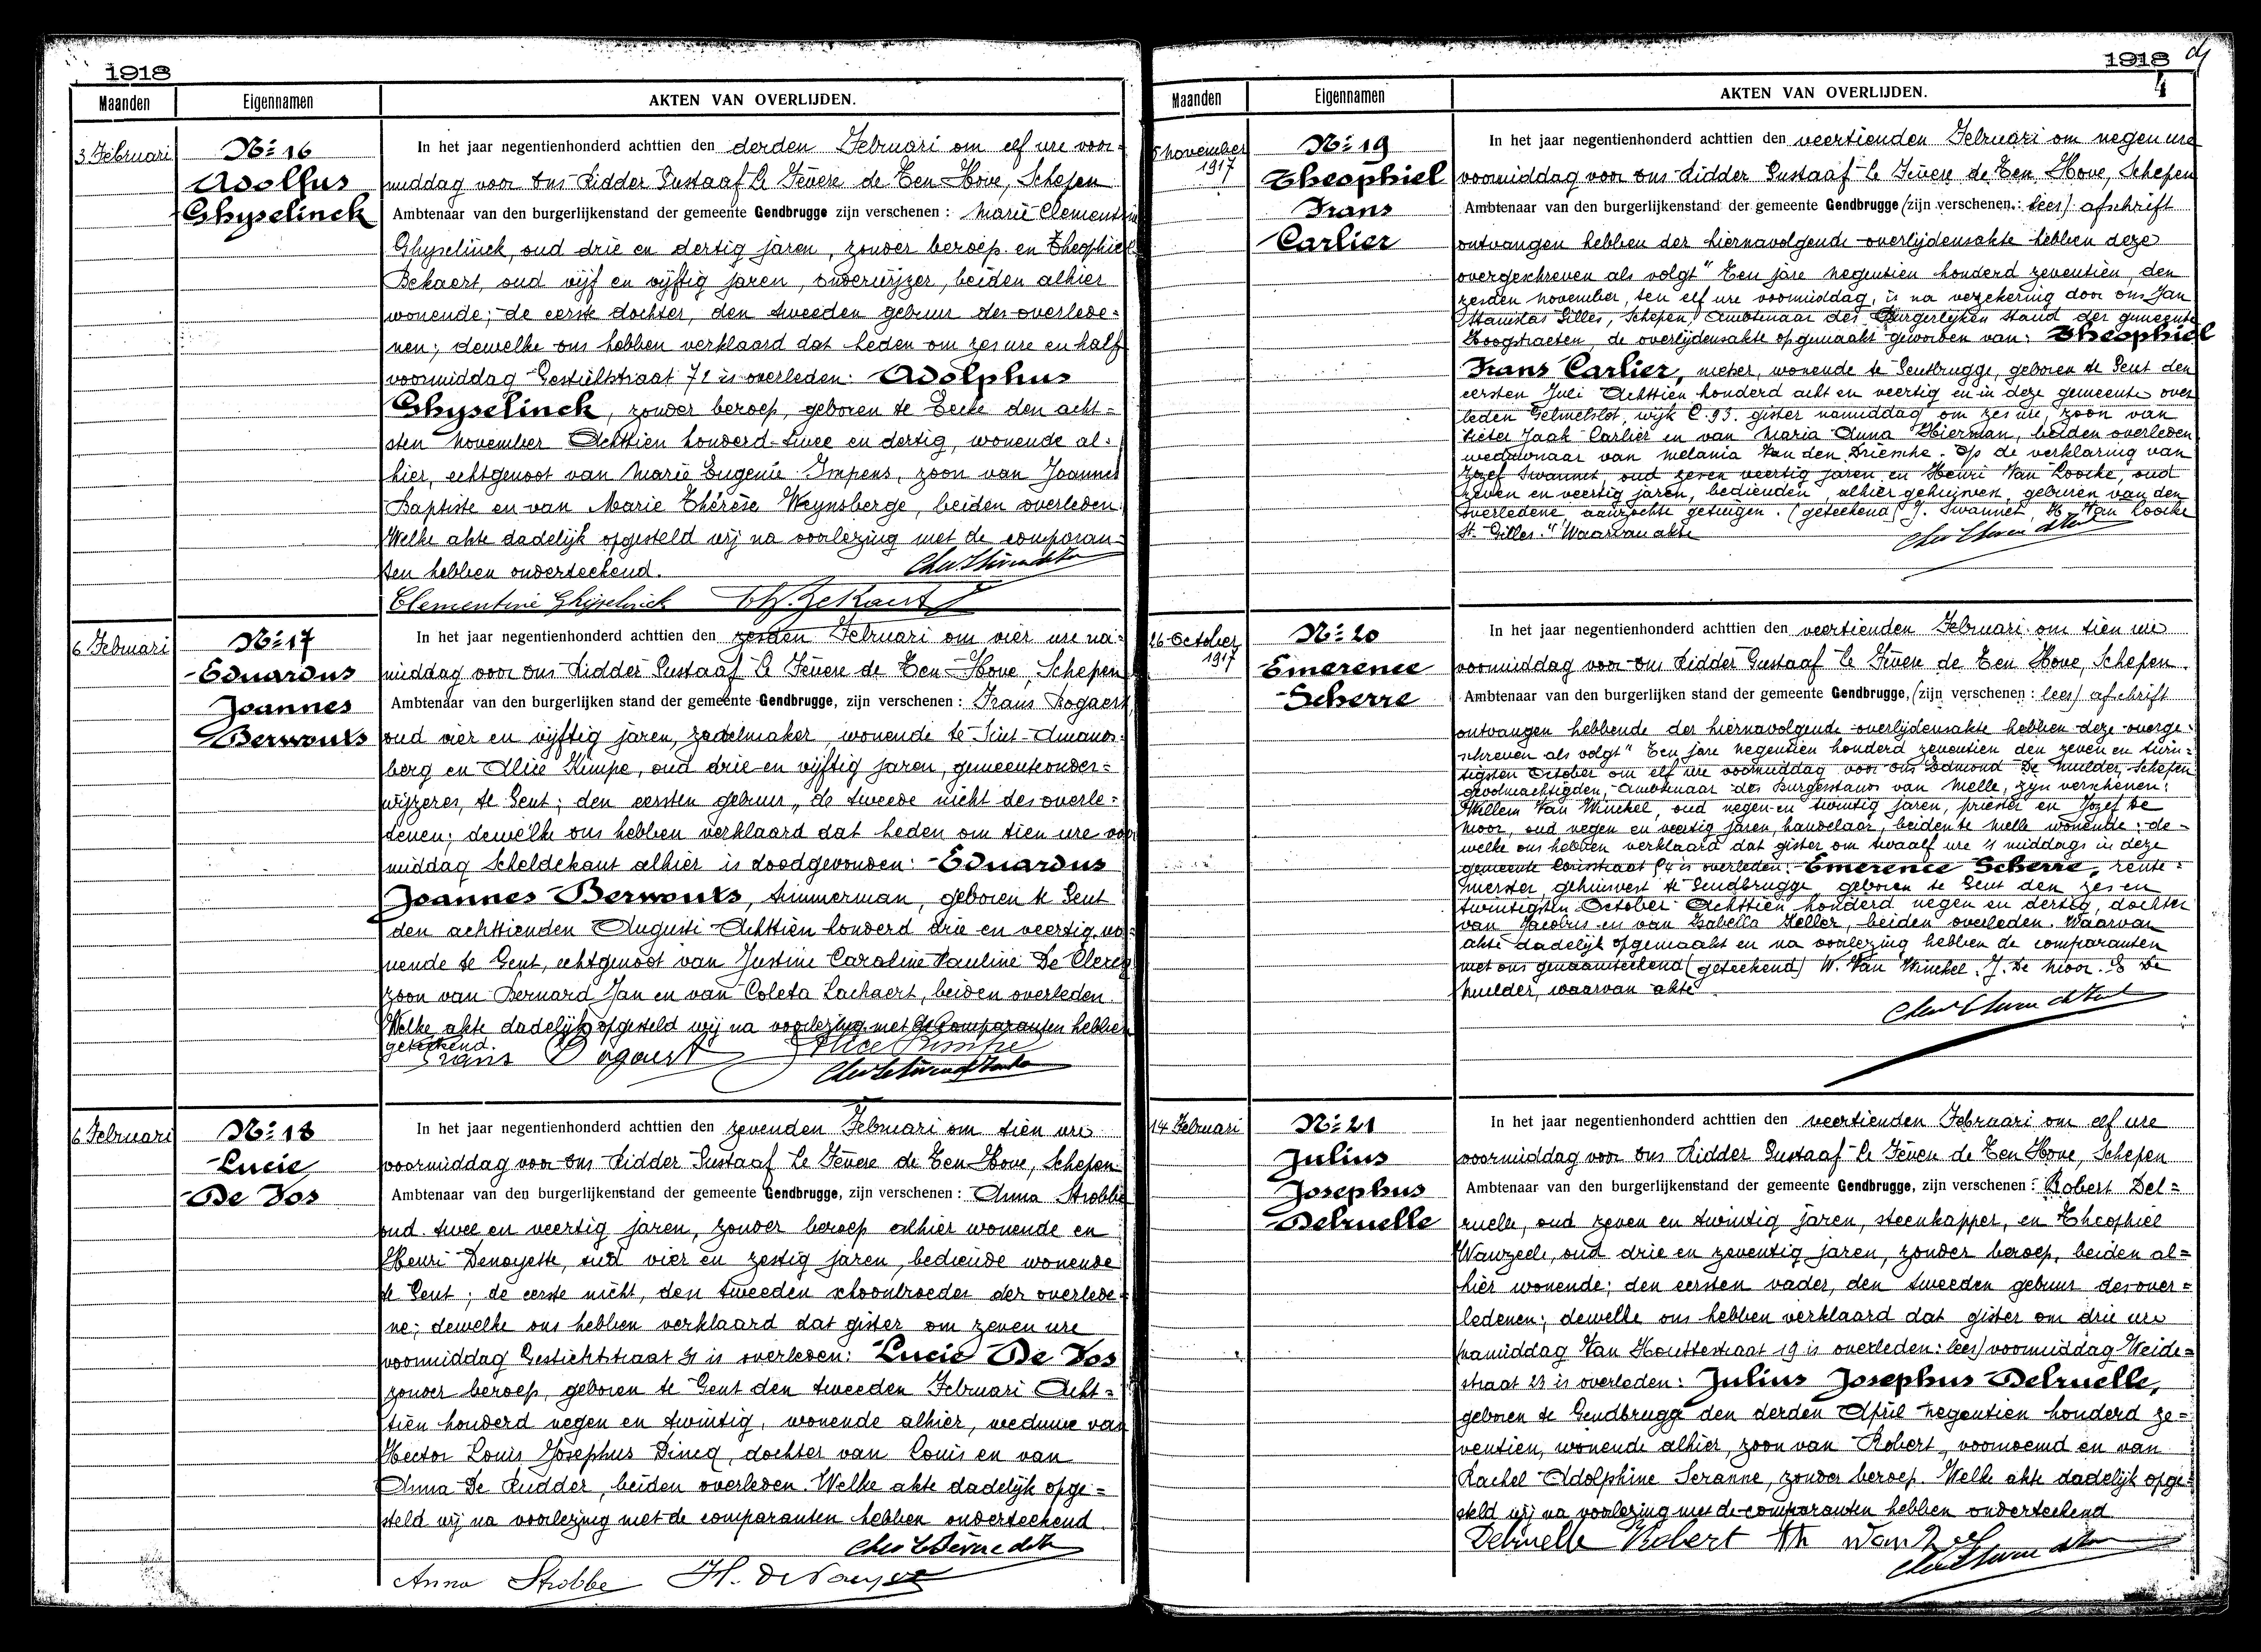 1918
Maanden
Eigennamen
AKTEN VAN OVERLIJDEN.
3 Februari
Nr 16
Adolfus
Ghyselinck
In het jaar negentienhonderd achttien den derden Februari om elf ure voor-
middag voor ons Ridder Gustaaf Le Fèvere de Ten Hove, Schepen
Ambtenaar van den burgerlijkenstand der gemeente Gendbrugge zijn verschenen : Marie Clementine
Ghyselinck, oud drie en dertig jaren, zonder beroep en Theophiel
Bekaert, oud vijf en vijftig jaren, onderwijzer, beiden alhier
wonende; de eerste dochter, den tweeden gebuur des overlede-
nen; dewelke ons hebben verklaard dat heden om zes ure en half
voormiddag Gestichtstraat 71 is overleden: Adolphus
Ghyselinck, zonder beroep, geboren te Eecke den acht-
sten november Achttien honderd twee en dertig, wonende al-
hier, echtgenoot van Marie Eugenie Impens, zoon van Joannes
Baptiste en van Marie Thérèse Weynsberge, beiden overleden.
Welke akte dadelijk opgesteld wij na voorlezing met de comparan-
ten hebben onderteekend.
Clementine Ghyselinck Th. Bekaert
6 Februari
Nr 17
Eduardus
Joannes
Berwouts
In het jaar negentienhonderd achttien den zesden Februari om vier ure na-
middag voor ons Ridder Gustaaf Le Fèvere de Ten Hove, Schepen
Ambtenaar van den burgerlijken stand der gemeente Gendbrugge, zijn verschenen : Frans Bogaert,
oud vier en vijftig jaren, zadelmaker, wonende te Sint-Amands-
berg en Alice Kimpe, oud drie en vijftig jaren, gemeenteonder-
wijzeres, te Gent; den eersten gebuur, de tweede nicht des overle-
denen; dewelke ons hebben verklaard dat heden om tien ure voor
middag Scheldekant alhier is doodgevonden: Eduardus
Joannes Berwouts, timmerman, geboren te Gent
den achttienden Augusti Achttien honderd drie en veertig, wo-
nende te Gent, echtgenoot van Justine Caroline Pauline De Clercq
zoon van Bernard Jan en van Coleta Lachaert, beiden overleden.
Welke akte dadelijk opgesteld wij na voorlezing met de comparanten hebben
geteekend.
Frans Bogaert Alice Kimpe
6 Februari
Nr 18
Lucie
De Vos
In het jaar negentienhonderd achttien den zevenden Februari om tien ure
voormiddag voor ons Ridder Gustaaf Le Fèvere de Ten Hove, Schepen
Ambtenaar van den burgerlijkenstand der gemeente Gendbrugge, zijn verschenen : Anna Strobbe
oud twee en veertig jaren, zonder beroep alhier wonende en
Henri Denoyette, oud vier en zestig jaren, bediende wonende
te Gent; de eerste nicht, den tweeden schoonbroeder der overlede-
ne; dewelke ons hebben verklaard dat gister om zeven ure
voormiddag Gestichtstraat 31 is overleden: Lucie De Vos
zonder beroep, geboren te Gent den tweeden Februari Acht-
tien honderd negen en twintig, wonende alhier, weduwe van
Hector Louis Josephus Dineq, dochter van Louis en van
Anna De Ridder, beiden overleden. Welke akte dadelijk opge-
steld wij na voorlezing met de comparanten hebben onderteekend.
Anna Strobbe
1918
4
Maanden
Eigennamen
AKTEN VAN OVERLIJDEN.
5 november
1917
Nr 19
Theophiel
Frans
Carlier
In het jaar negentienhonderd achttien den veertienden Februari om negen ure
voormiddag voor ons Ridder Gustaaf Le Fèvere de Ten Hove, Schepen
Ambtenaar van den burgerlijkenstand der gemeente Gendbrugge (zijn verschenen.: lees) afschrift
ontvangen hebben der hiernavolgende overlijdensakte hebben deze
overgeschreven als volgt " Ten jare negentien honderd zeventien, den
zesden november, ten elf ure voormiddag, is na verzekering door ons Jan
Stanislas Gilles, Schepen, Ambtenaar des Burgerlijken stand der gemeente
Hoogstraeten, de overlijdensakte opgemaakt geworden van: Theophiel
Frans Carlier, meter, wonende te Gentbrugge, geboren te Gent den
eersten Juli Achttien honderd acht en veertig en in deze gemeente over
leden Gelmelslot, wijk C. 93. gister namiddag om zes ure, zoon van
Pieter Jaak Carlier en van Maria Anna Thierman, beiden overleden
weduwnaar van Melania Van den Driessche. Op de verklaring van
Jozef Swannet, oud zeven veertig jaren en Henri Van Loocke, oud
zeven en veertig jaren, bedienden, alhier gehuisvest, geburen van den
overledene, aanzochte getuigen. (geteekend) J. Swannet, H. Van Loocke
St. Gilles." Waarvan akte
26 October
1917
Nr 20
Emerence
Scherre
In het jaar negentienhonderd achttien den veertienden Februari om tien ure
voormiddag voor ons Ridder Gustaaf Le Fèvere de Ten Hove, Schepen.
Ambtenaar van den burgerlijken stand der gemeente Gendbrugge, (zijn verschenen : lees) afschrift
ontvangen hebbende der hiernavolgende overlijdensakte hebben deze overge-
schreven als volgt " Ten jare negentien honderd zeventien den zeven en twin-
tigsten October om elf ure voormiddag voor ons Edmond De Mulder, Schepen
gevolmachtigden, ambtenaar des Burgerstands van Melle, zijn verschenen:
Willem Van Winckel, oud negen en twintig jaren, priester en Jozef De
Moor, oud negen en veertig jaren, handelaar, beiden te Melle wonende; de-
welke ons hebben verklaard dat gister om twaalf ure 's middags in deze
gemeente is overleden: Emerence Scherre, rente-
nierster, gehuisvest te Gendbrugge, geboren te Gent den zes en
twintigsten October Achttien honderd negen en dertig, dochter
van Jacobus en van Isabella Keller, beiden overleden. Waarvan
akte dadelijk opgemaakt en na voorlezing hebben de comparanten
met ons genaamteekend (geteekend) W. Van Winckel. J. De Moor. E. De
Muelder, waarvan akte
14 Februari
Nr 21
Julius
Josephus
Delruelle
In het jaar negentienhonderd achttien den veertienden Februari om elf ure
voormiddag voor ons Ridder Gustaaf Le Fèvere de Ten Hove, Schepen
Ambtenaar van den burgerlijkenstand der gemeente Gendbrugge, zijn verschenen : Robert Del-
ruelle, oud zeven en twintig jaren, steenkapper, en Theophiel
Wanzeele, oud drie en zeventig jaren, zonder beroep, beiden al-
hier wonende; den eersten vader, den tweeden gebuur des over-
ledenen; dewelke ons hebben verklaard dat gister om drie ure
namiddag Van Houttestraat 19 is overleden: lees) voormiddag Weide-
straat 23 is overleden: Julius Josephus Delruelle,
geboren te Gendbrugge den derden April negentien honderd ze-
ventien, wonende alhier, zoon van Robert, voornoemd en van
Rachel Adolphine Seranne, zonder beroep. Welke akte dadelijk opge-
steld wij na voorlezing met de comparanten hebben onderteekend.
Delruelle Robert